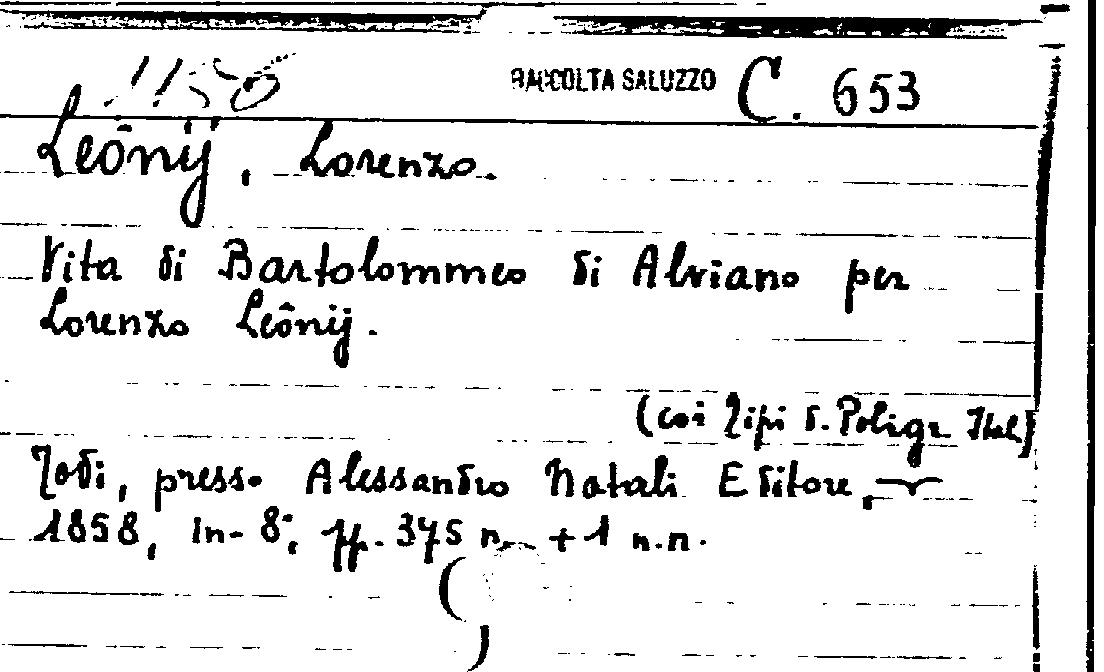 1150 RACCOLTA SALUZZO C. 653
Leônij, Lorenzo.
Vita di Bartolommeo di Alviano per
Lorenzo Leônij.
(coi Tipi d. Poligr. Ital.)
Todi, presso Alessandro Natali Editore,
1858, In-8°, pp. 375 n. + 1 n.n.